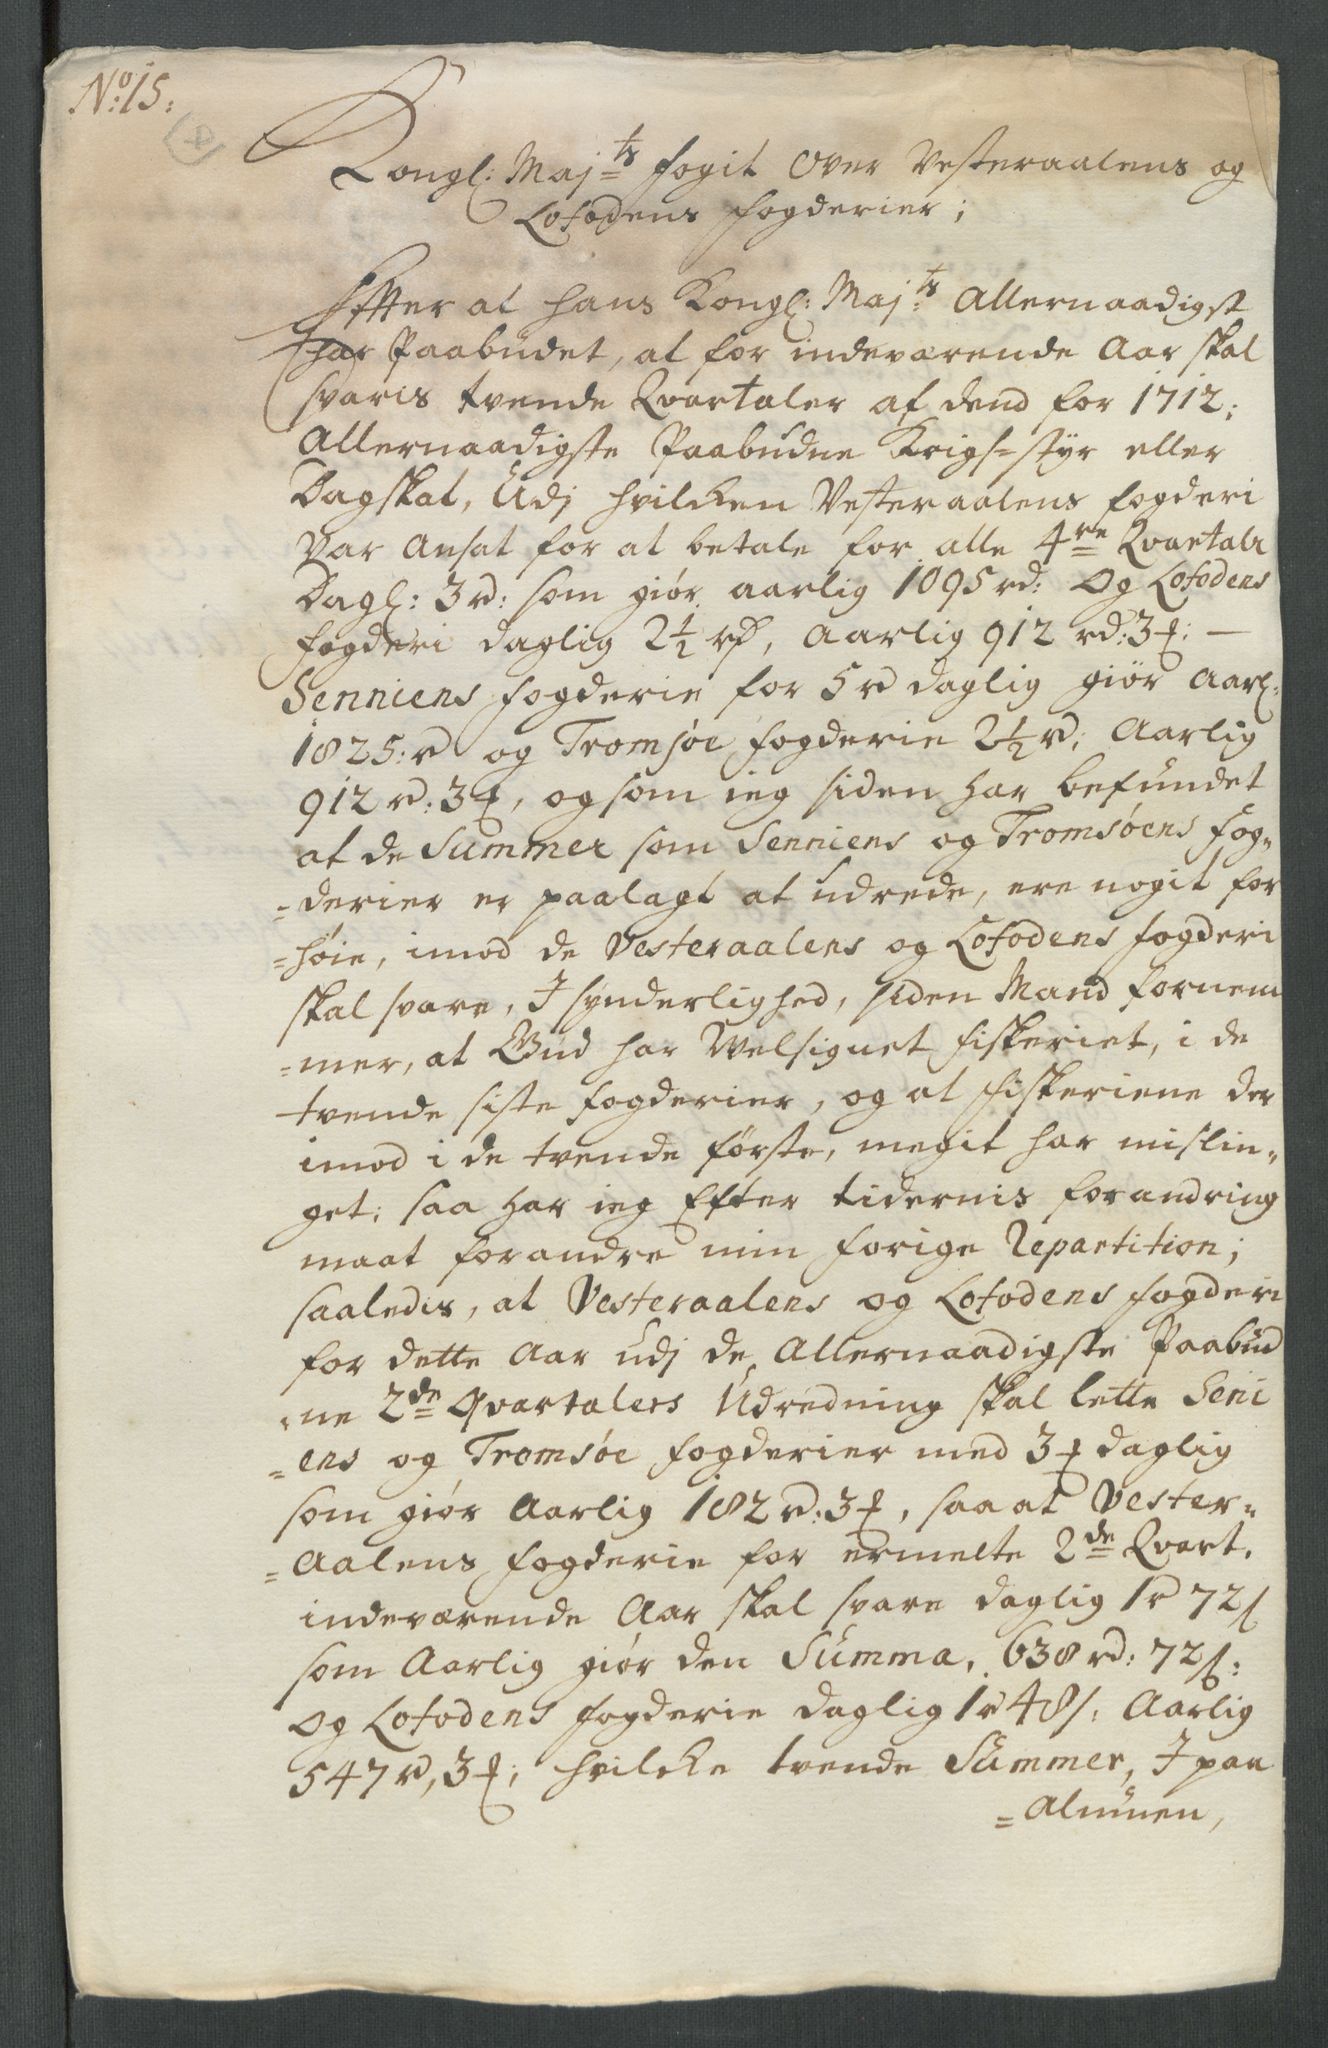 No: 15:
Kongl: Maj:ts fogit Over Vesteraalens og
Lofodens fogderier;
Effter at hans Kongl: Maj:ts Allernaadigst
har Paabudet, at for indeværende Aar skal
svaris tvende Qvartaler af dend for 1712:
Allernaadigste Paabudne Krigs=styr eller
Dagskat, Udj hvilcken Vesteraalens fogderi
Var Ansat for at betale for alle 4re Qvartaler
Dagl: 3 rd: som giør aarlig 1095 rd: Og Lofodens
fogderi daglig 2½ rd, Aarlig 912 rd: 3 ƒ: —
Senniens fogderie for 5 rd daglig giør Aarl:
1825: rd og Tromsøe fogderie 2½ rd: Aarlig
912 rd: 3 ƒ, og som ieg siden har befundet
at de Summer som Senniens og Tromsøens Fog=
=derier er paalagt at udrede, ere nogit for
=høie, imod de Vesteraalens og Lofodens fogderi
skal svare, I synderlighed, siden Mand fornem
=mer, at Gud har Welsignet fiskeriet, i de
tvende siste fogderier, og at fiskeriene der
imod i de tvende første, megit har mislin=
get; saa har ieg Efter tidernis forandring
maat forandre min forige Repartition;
saaledis, at Vesteraalens og Lofodens fogderi
for dette Aar udj de Allernaadigste Paabud
=ne 2de Qvartalers Udredning skal lette Seni
=ens og Tromsøe fogderier med 3 ƒ daglig
som giør Aarlig 182 rd: 3 ƒ, saa at Vester=
=Aalens fogderie for ermelte 2de Qvart.
indeværende Aar skal svare daglig 1 rd 72 s
som Aarlig giør den Summa, 638 rd: 72 s:
og Lofodens fogderie daglig 1 rd 48 s: Aarlig
547 rd, 3 ƒ; hvilcke tvende Summer, I paa
=Almuen,